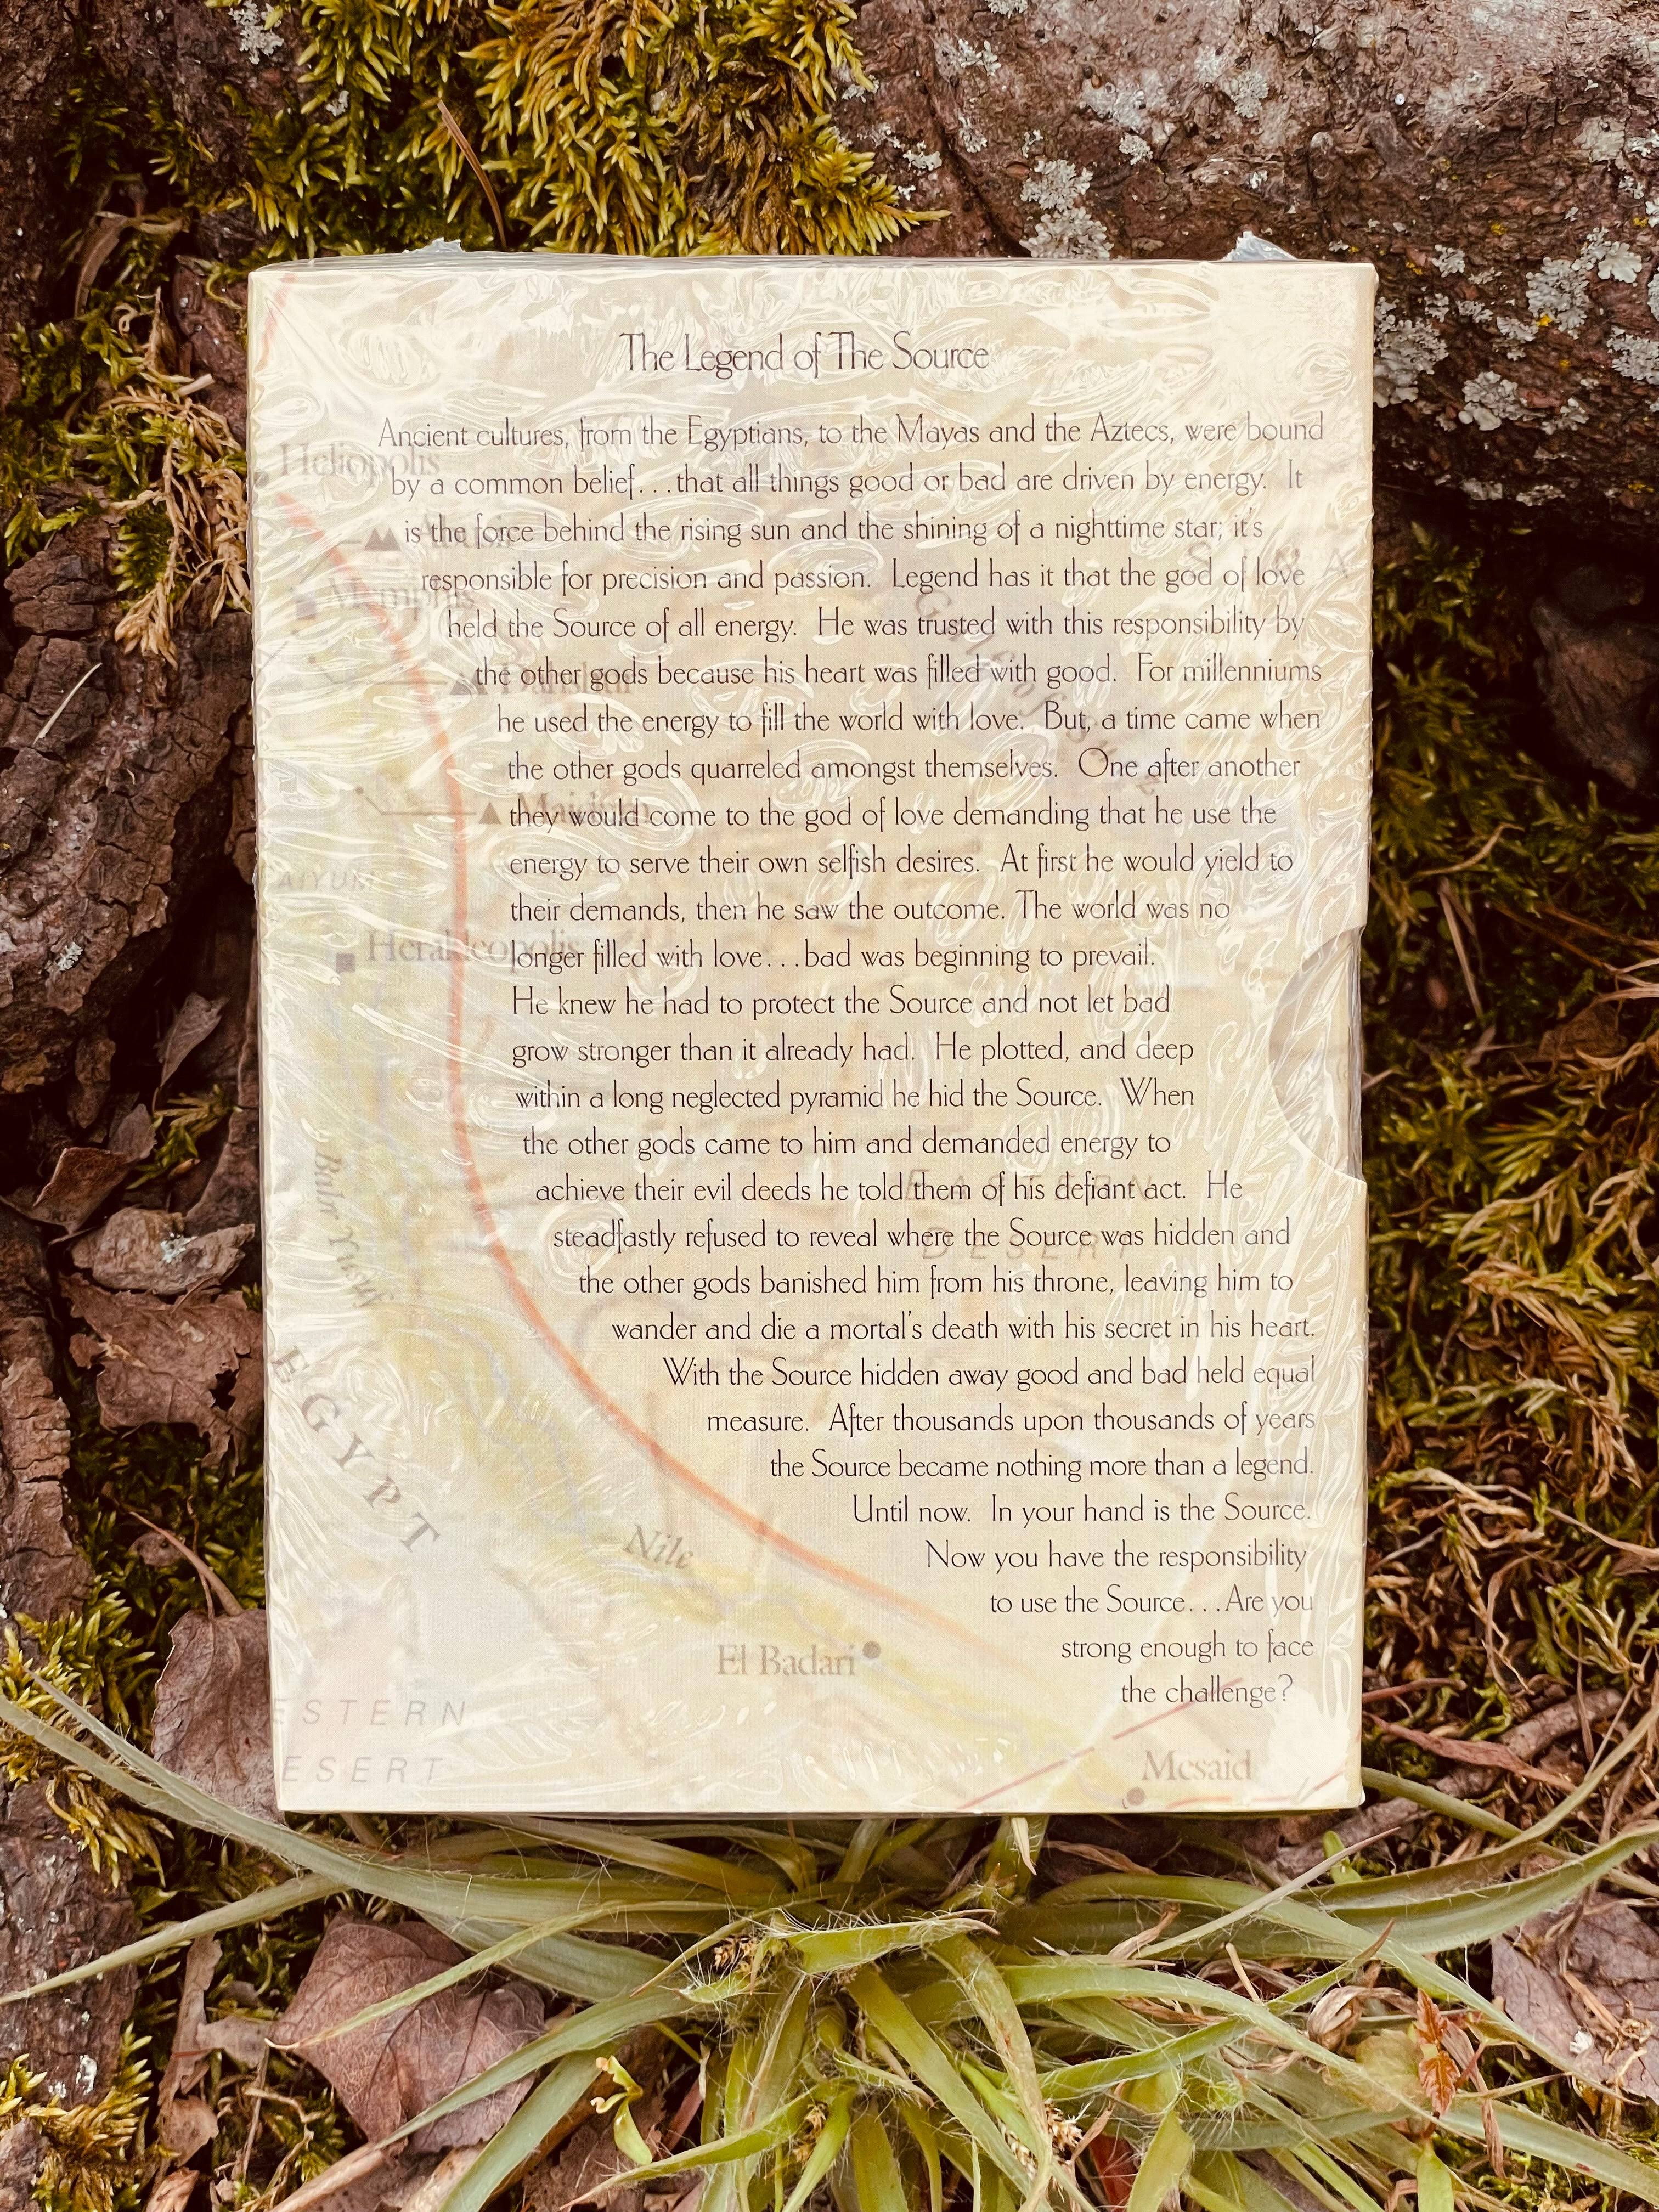 The Legend of The Source
Ancient cultures, from the Egyptians, to the Mayas and the Aztecs, were bound
by a common belief...that all things good or bad are driven by energy. It
is the force behind the rising sun and the shining of a nighttime star; it's
responsible for precision and passion. Legend has it that the god of love
held the Source of all energy. He was trusted with this responsibility by
the other gods because his heart was filled with good. For millenniums
he used the energy to fill the world with love. But, a time came when
the other gods quarreled amongst themselves. One after another
they would come to the god of love demanding that he use the
energy to serve their own selfish desires. At first he would yield to
their demands, then he saw the outcome. The world was no
longer filled with love...bad was beginning to prevail.
He knew he had to protect the Source and not let bad
grow stronger than it already had. He plotted, and deep
within a long neglected pyramid he hid the Source. When
the other gods came to him and demanded energy to
achieve their evil deeds he told them of his defiant act. He
steadfastly refused to reveal where the Source was hidden and
the other gods banished him from his throne, leaving him to
wander and die a mortal's death with his secret in his heart.
With the Source hidden away good and bad held equal
measure. After thousands upon thousands of years
the Source became nothing more than a legend.
Until now. In your hand is the Source.
Now you have the responsibility
to use the Source...Are you
strong enough to face
the challenge?
Heliopolis
Memphis
Dahshur
Maidum
AIYUM
Herakleopolis
Bahr Yusuf
EASTERN
DESERT
EGYPT
Nile
El Badari
ESTERN
ESERT
Mesaid